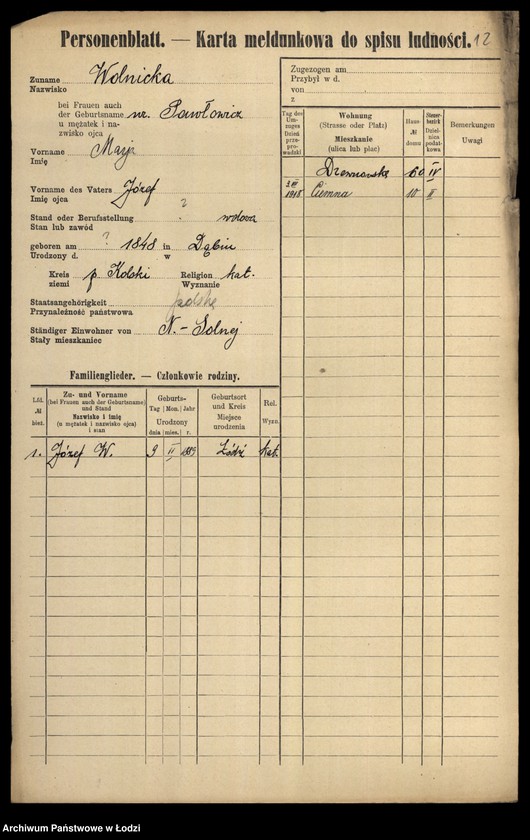 Personenblatt. — Karta meldunkowa do spisu ludności. 12
Zuname Wolnicka
Nazwisko
bei Frauen auch
der Geburtsname ur. Pawłowicz
u mężatek i na-
zwisko ojca
Vorname
Imię
Vorname des Vaters Józef
Imię ojca
Stand oder Berufsstellung ? wdowa
Stan lub zawód
geboren am ? 1848 in Dąbiu
Urodzony d. w
Kreis p. Kolski Religion kat.
ziemi Wyznanie
Staatsangehörigkeit polska
Przynależność państwowa
Ständiger Einwohner von N.-Solnej
Stały mieszkaniec
Familienglieder. — Członkowie rodziny.
Lfd. № bież.
Zu- und Vorname
(bei Frauen auch der Geburtsname)
und Stand
Nazwisko i imię
(u mężatek i nazwisko ojca)
i stan
Geburts-
Tag Mon. Jahr
Urodzony
dnia mies. r.
Geburtsort
und Kreis
Miejsce
urodzenia
Rel.
Wyzn.
1. Józef W. 9 II 1889 Łódź kat.
Zugezogen am
Przybył w d.
von
z
Tag des Um-
zuges
Dzień
prze-
prowadzki
Wohnung
(Strasse oder Platz)
Mieszkanie
(ulica lub plac)
Haus-
№
domu
Steuer-
bezirk
Dziel-
nica
podat-
kowa
Bemerkungen
Uwagi
Drewnowska 60 IV
1918 Ciemna 10 II
Archiwum Państwowe w Łodzi